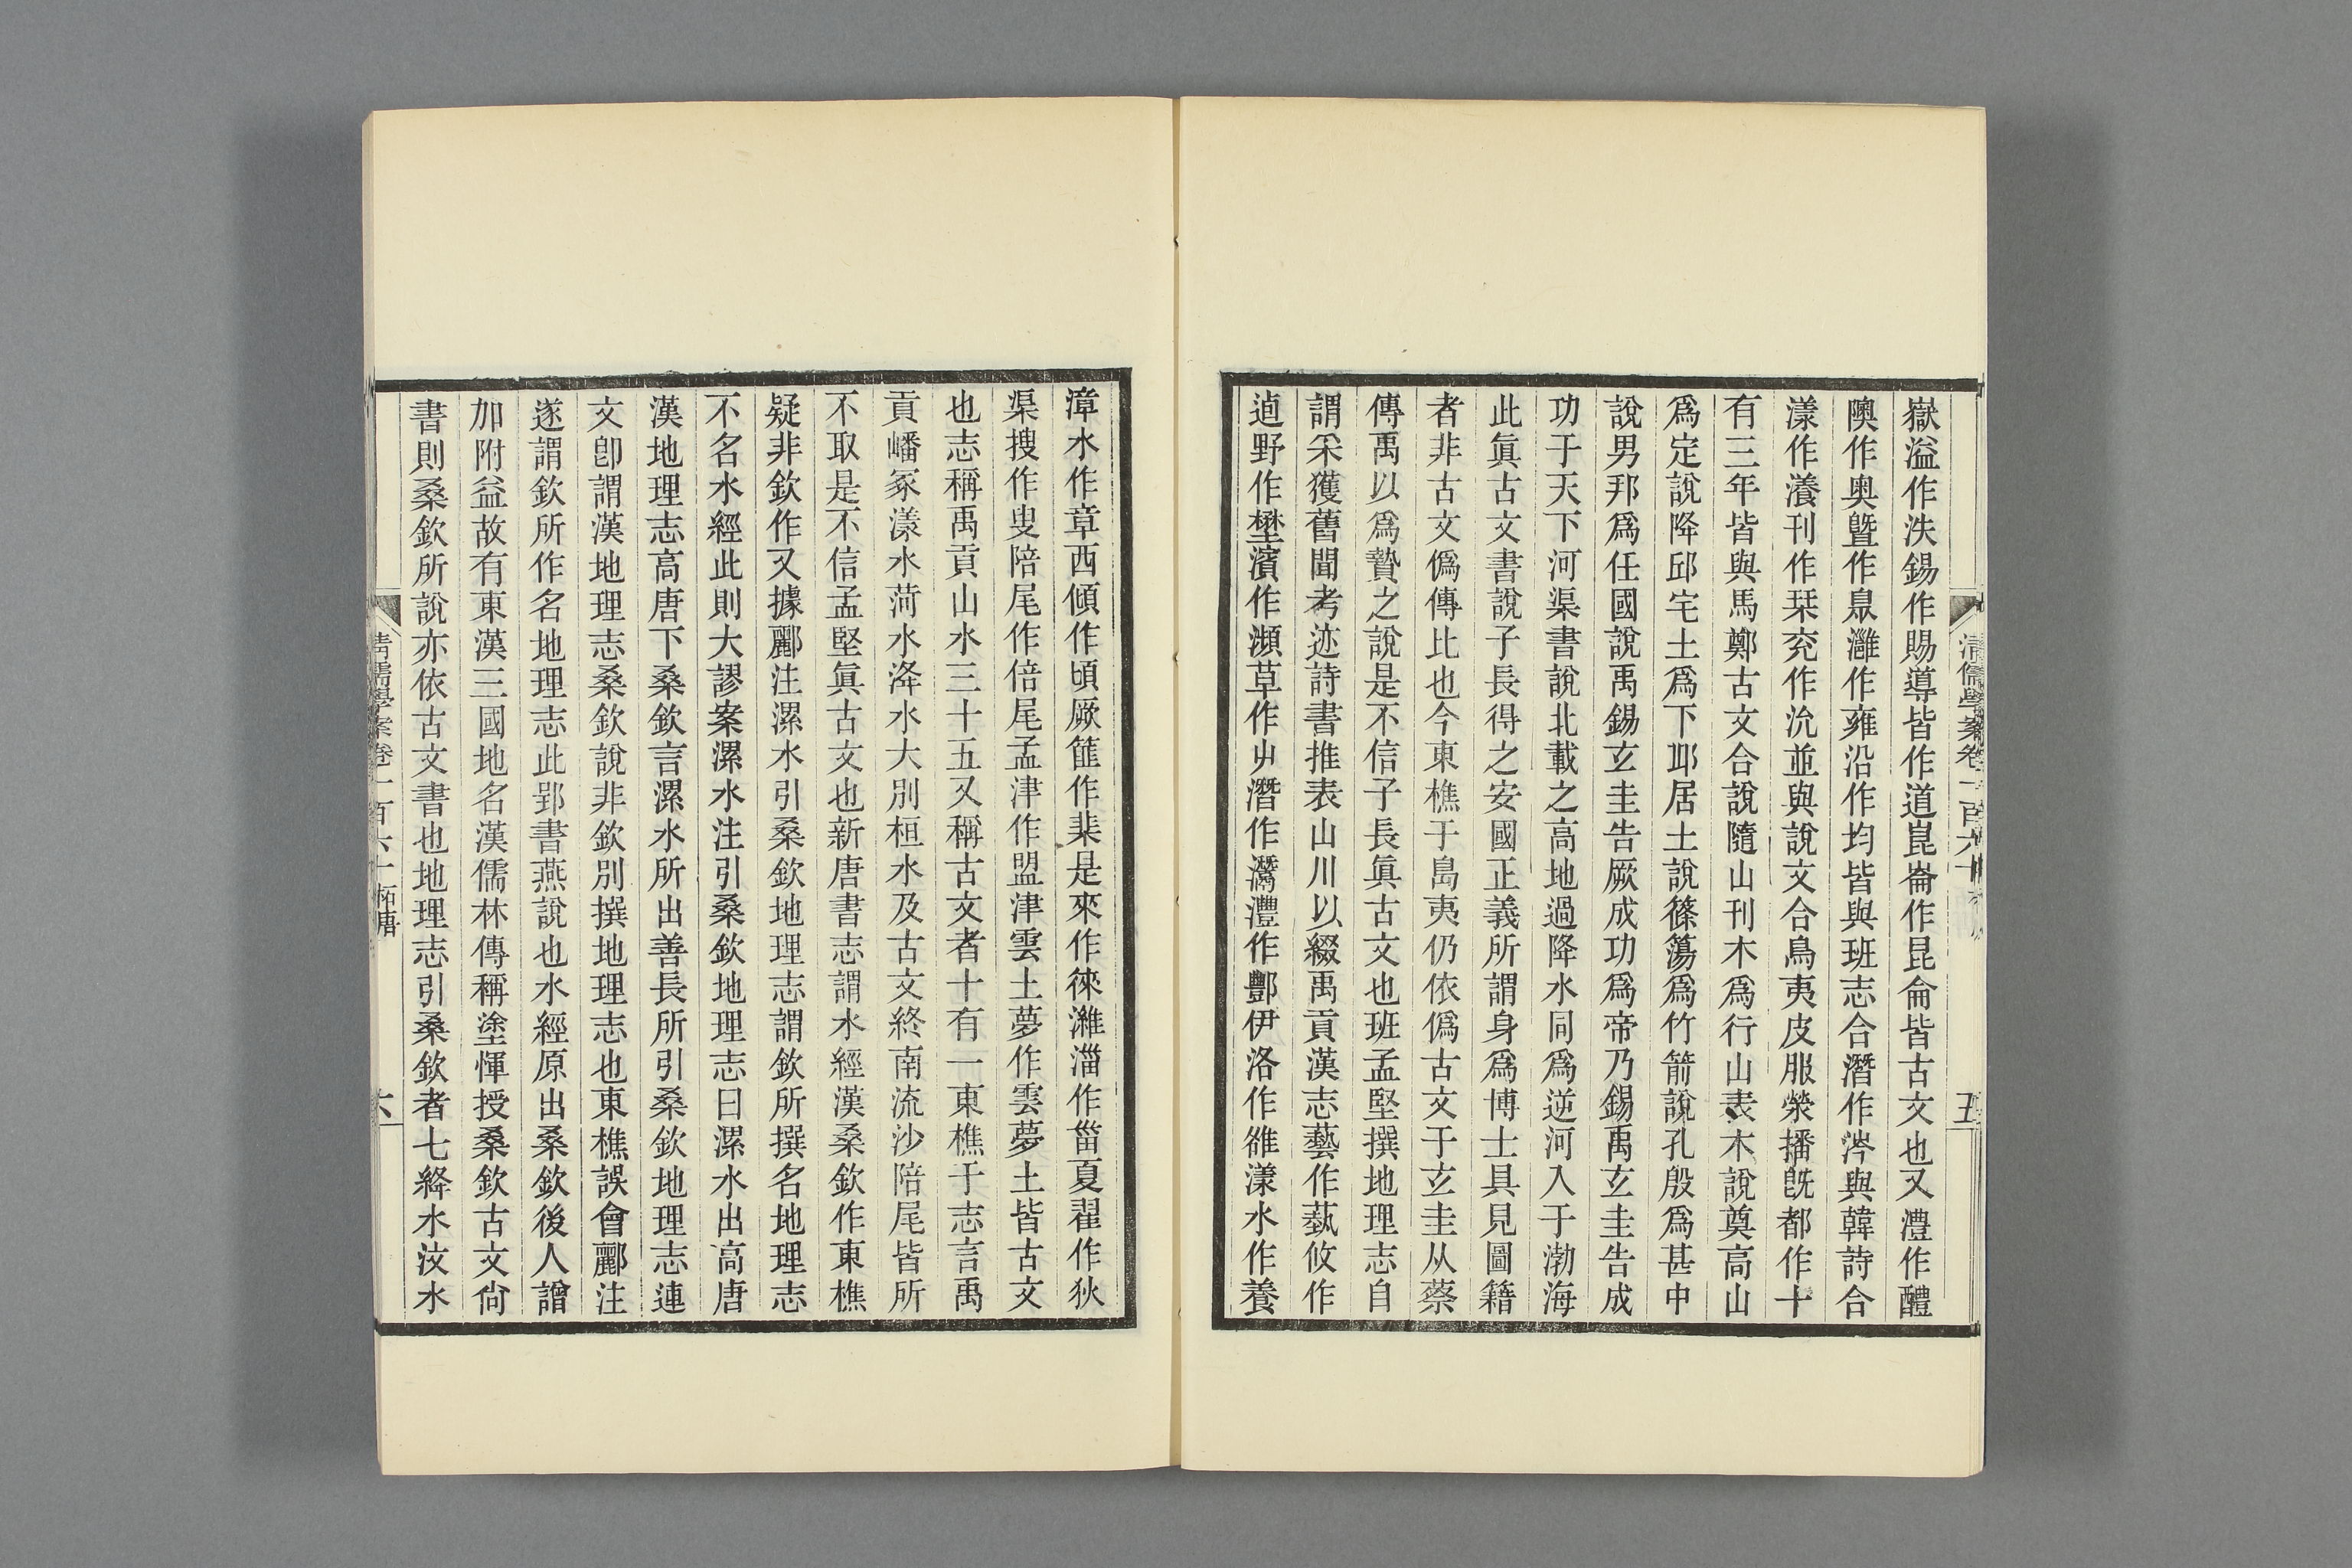 清儒學案卷一百六十
五
嶽溢作泆錫作賜導皆作道崑崙作昆侖皆古文也又澧作醴
隩作奧曁作臮灉作雍沿作均皆與班志合潛作涔與韓詩合
漾作瀁刊作栞兖作沇並與說文合鳥夷皮服滎播旣都作十
有三年皆與馬鄭古文合說隨山刊木爲行山表木說奠高山
爲定說降邱宅土爲下邱居土說篠簜爲竹箭說孔殷爲甚中
說男邦爲任國說禹錫玄圭告厥成功爲帝乃錫禹玄圭告成
功于天下河渠書說北載之高地過降水同爲逆河入于渤海
此眞古文書說子長得之安國正義所謂身爲博士具見圖籍
者非古文僞傳比也今東樵于島夷仍依僞古文于玄圭从蔡
傳禹以爲贄之說是不信子長眞古文也班孟堅撰地理志自
謂采獲舊聞考迹詩書推表山川以綴禹貢漢志藝作蓺攸作
逌野作壄濱作瀕草作屮潛作灊澧作酆伊洛作雒漾水作養
漳水作章西傾作頃厥篚作棐是來作徠濰淄作甾夏翟作狄
渠搜作叟陪尾作倍尾孟津作盟津雲土夢作雲夢土皆古文
也志稱禹貢山水三十五又稱古文者十有一東樵于志言禹
貢嶓冢漾水菏水洚水大別桓水及古文終南流沙陪尾皆所
不取是不信孟堅眞古文也新唐書志謂水經漢桑欽作東樵
疑非欽作又據酈注漯水引桑欽地理志謂欽所撰名地理志
不名水經此則大謬案漯水注引桑欽地理志曰漯水出高唐
漢地理志高唐下桑欽言漯水所出善長所引桑欽地理志連
文卽謂漢地理志桑欽說非欽別撰地理志也東樵誤會酈注
遂謂欽所作名地理志此郢書燕說也水經原出桑欽後人譄
加附益故有東漢三國地名漢儒林傳稱塗惲授桑欽古文尙
書則桑欽所說亦依古文書也地理志引桑欽者七絳水汶水
清儒學案卷一百六十 柘唐
六